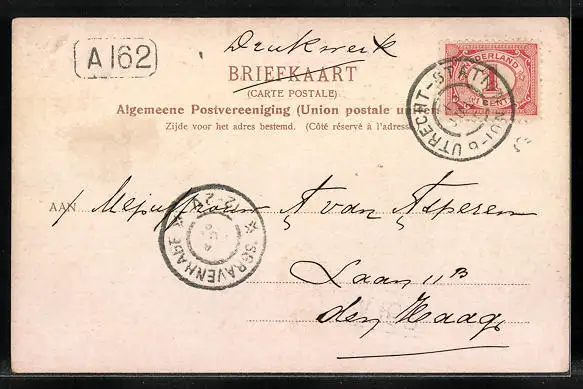 A 162
Drukwerk
BRIEFKAART
(CARTE POSTALE)
Algemeene Postvereeniging (Union postale
Zijde voor het adres bestemd. (Côté réservé à l'adresse
NEDERLAND
1
CENT
UTRECHT-STATION
AAN Mejuffrouw A van Asperen
'SGRAVENHAGE
12-2
Laan 11B
den Haag